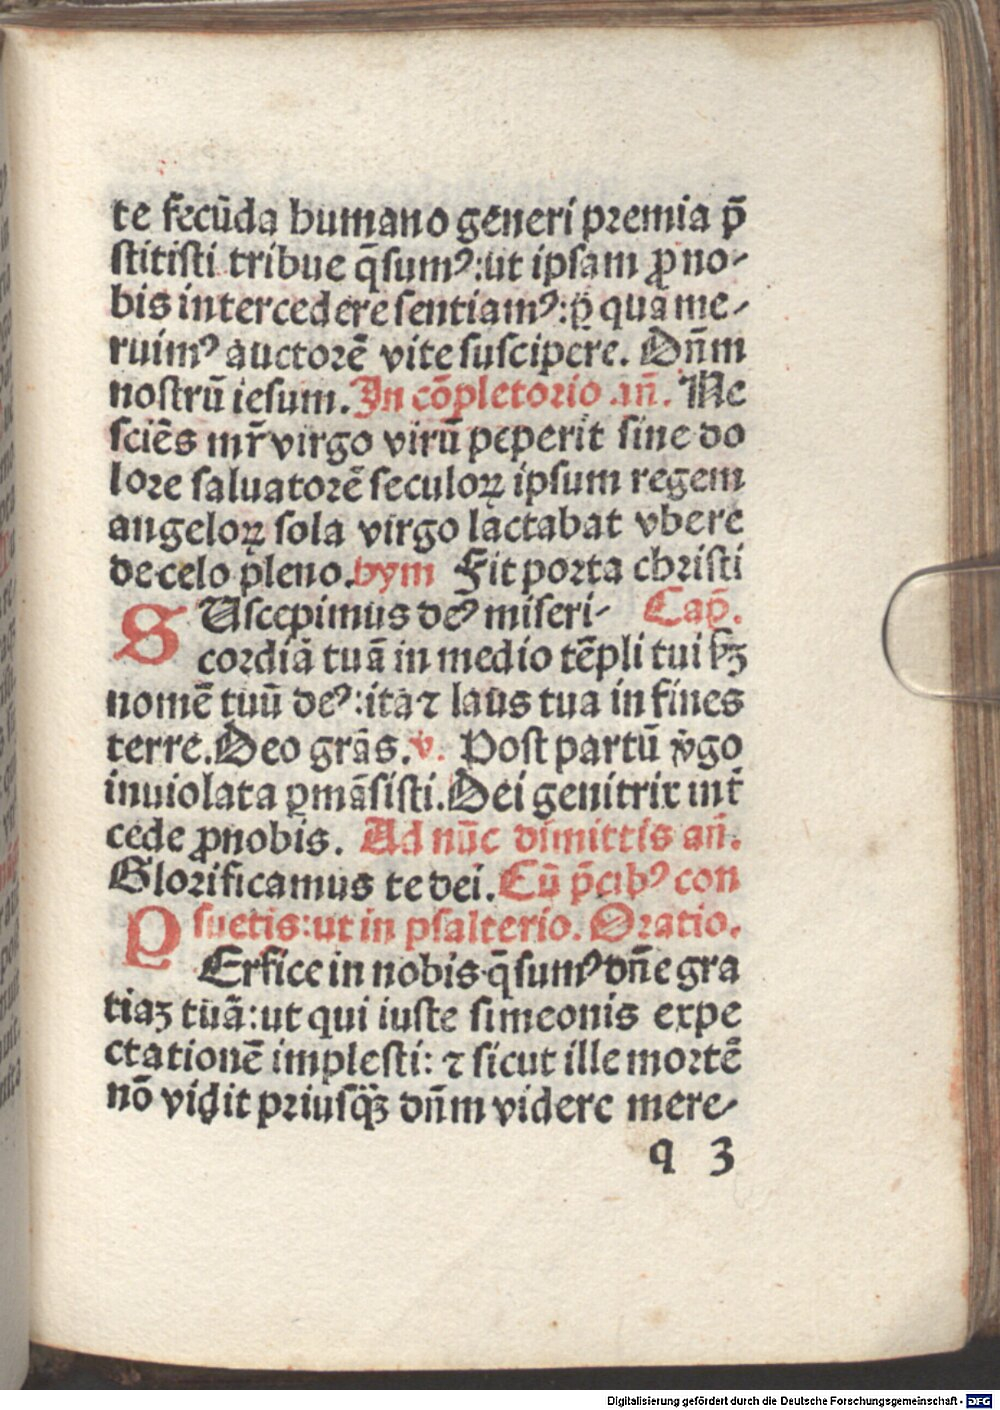 te fecūda humano generi premia p̄
stitisti tribue q̄sumꝰ:ut ipsam ꝓ no-
bis intercedere sentiamꝰ:ꝑ quā me-
ruimꝰ auctorē vite suscipere. Dn̄m
nostrū iesum. In cōpletorio .an̄. Ne
sciēs mr̄ virgo virū peperit sine do
lore saluatorē seculoꝝ ipsum regem
angeloꝝ sola virgo lactabat vbere
de celo pleno. hym Fit porta christi
SUscepimus deꝰ miseri- Cap̄.
cordiā tuā in medio tēpli tui sꝫ
nomē tuū deꝰ:ita ⁊ laus tua in fines
terre. Deo grās. v. Post partū v̄go
inuiolata ꝑmāsisti. Dei genitrix int̄
cede ꝓ nobis. Ad nūc dimittis an̄.
Glorificamus te dei. Cū p̄cibꝰ con
suetis:ut in psalterio. Oratio.
PErfice in nobis q̄sumꝰ dn̄e gra
tiaꝫ tuā:ut qui iuste simeonis expe
ctationē implesti: ⁊ sicut ille mortē
nō vidit priusq̄ꝫ dn̄m videre mere-
q 3
Digitalisierung gefördert durch die Deutsche Forschungsgemeinschaft - DFG